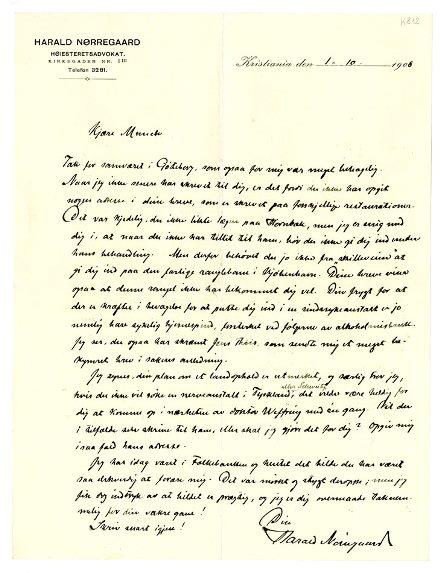 K 812
HARALD NØRREGAARD
HØIESTERETSADVOKAT.
KIRKEGADEN NR.
Telefon 3281.
Kristiania den 1 - 10 - 1905
Kjære Munch
Tak for samværet i Göteborg, som ogsaa for mig var meget behagelig.
Naar jeg ikke snare har skrevet til dig, er det fordi du ikke har opgit
nogen adresse i dine breve, som er skrevet paa forskjellige restaurationer.
Det var kjedelig, du ikke likte lægen paa Hornbæk, men jeg er enig med
dig i, at naar du ikke har tillid til ham, bør du ikke gi dig ind under
hans behandling. Men derfor behøvet du jo ikke fra
gi dig ind paa den farlige i Kjøbenhavn. Dine breve viser
ogsaa at denne ikke har bekommet dig vel. Din frygt for at
der er kræfter i bevægelse for at putte dig ind i en sindssykeanstalt er jo
nemlig bare sykelig hjernespind, forsterket ved følgerne av alkoholmisbruk.
Jeg ser, du ogsaa har skræmt Jens Thiis, som sendte mig et meget be-
kymret brev i sakens anledning.
Jeg synes, din plan om et landophold er utmerket, og særlig tror jeg,
hvis du ikke vil søke en nerveanstalt i Tyskland, det vilde være heldig for
eller Schweitz
dig at komme op i nærheten av doktor med én gang. Vil du
i tilfælde selv skrive til ham, eller skal jeg gjøre det for dig? Opgiv mig
i saa fald hans adresse.
Jeg har idag været i Folkebanken og hentet det billede du har været
saa elskverdig at forære mig. Det var mørkt og skygt deroppe; men jeg
fik dog indtryk av at billedet er prægtig, og jeg er dig overmaade taknem-
melig for din vakre gave!
Skriv snart igjen!
Din
Harald Nørregaard